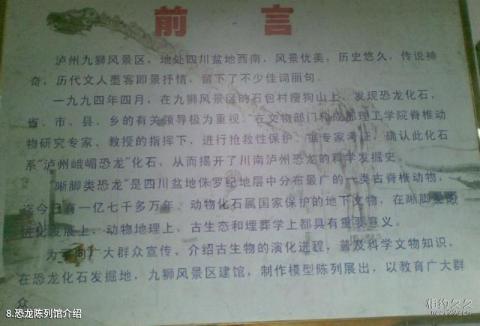 前 言
泸州九狮风景区，地处四川盆地西南，风景优美，历史悠久，传说神
奇，历代文人墨客即景抒情，留下了不少佳词丽句。
一九九四年四月，在九狮风景区的石包村瘦狗山上，发现恐龙化石，
省、市、县、乡的有关领导极为重视。在文物部门和成都理工学院脊椎动
物研究专家、教授的指挥下，进行抢救性保护。据专家考证，确认此化石
系“泸州峨嵋恐龙”化石，从而揭开了川南泸州恐龙的科学发掘史。
“晰脚类恐龙”是四川盆地侏罗纪地层中分布最广的一类古脊椎动物，
迄今已有一亿七千多万年。动物化石属国家保护的地下文物，在晰脚类恐龙
进化发展上、动物地理上、古生态和埋葬学上都具有重要意义。
为了向广大群众宣传，介绍古生物的演化进程，普及科学文物知识，
在恐龙化石发掘地，九狮风景区建馆，制作模型陈列展出，以教育广大群
众。
8.恐龙陈列馆介绍